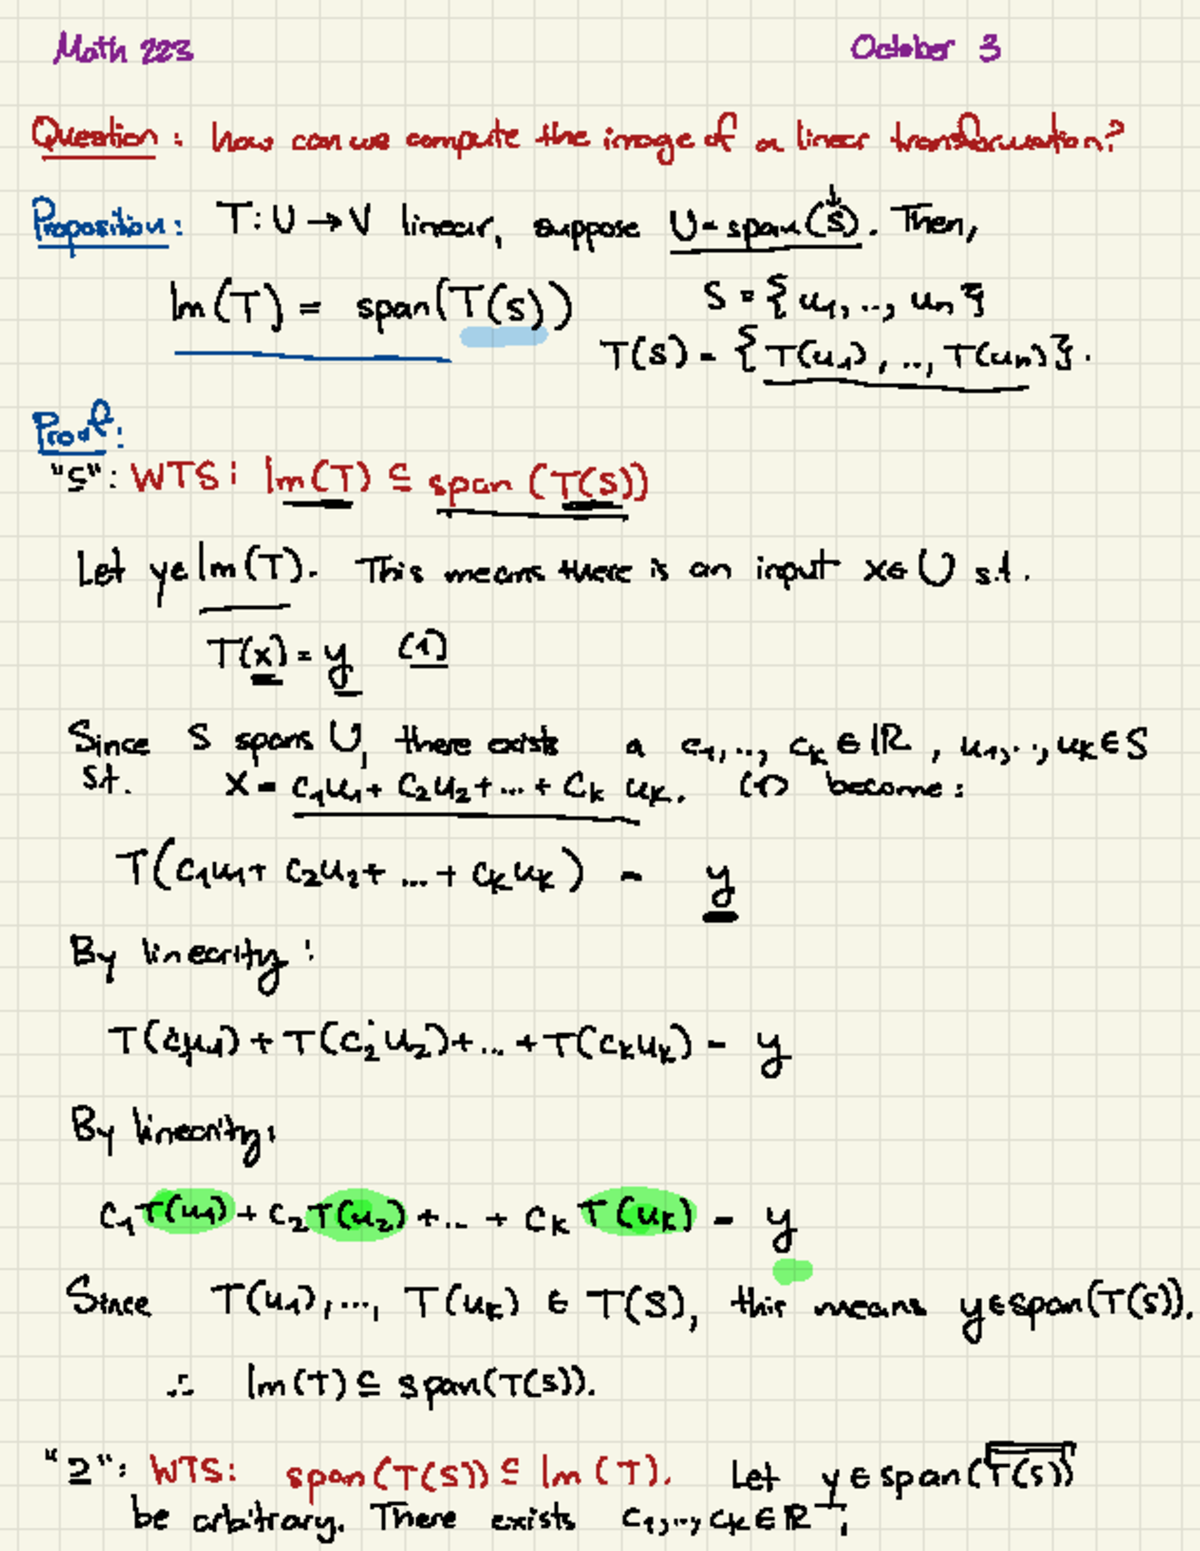 Math 223 October 3
Question: How can we compute the image of a linear transformation?
Proposition: T: U → V linear, suppose U = span(S). Then,
Im(T) = span(T(S)) S = {u1, .., un}
T(S) = {T(u1), .., T(un)}.
Proof:
"⊆": WTS: Im(T) ⊆ span (T(S))
Let y∈Im(T). This means there is an input x∈U s.t.
T(x) = y (1)
Since S spans U, there exists a c1, .., ck ∈ ℝ, u1, .., uk ∈ S
s.t. x = c1u1 + c2u2 + ... + ck uk. (1) become:
T(c1u1 + c2u2 + ... + ckuk) = y
By linearity:
T(c1u1) + T(c2u2) + ... + T(ckuk) = y
By linearity:
c1T(u1) + c2T(u2) + .. + ck T(uk) = y
Since T(u1), ..., T(uk) ∈ T(S), this means y∈span(T(S)).
∴ Im(T) ⊆ span(T(S)).
"⊇": WTS: span(T(S)) ⊆ Im(T). Let y ∈ span(T(S))
be arbitrary. There exists c1, .., ck ∈ ℝ,